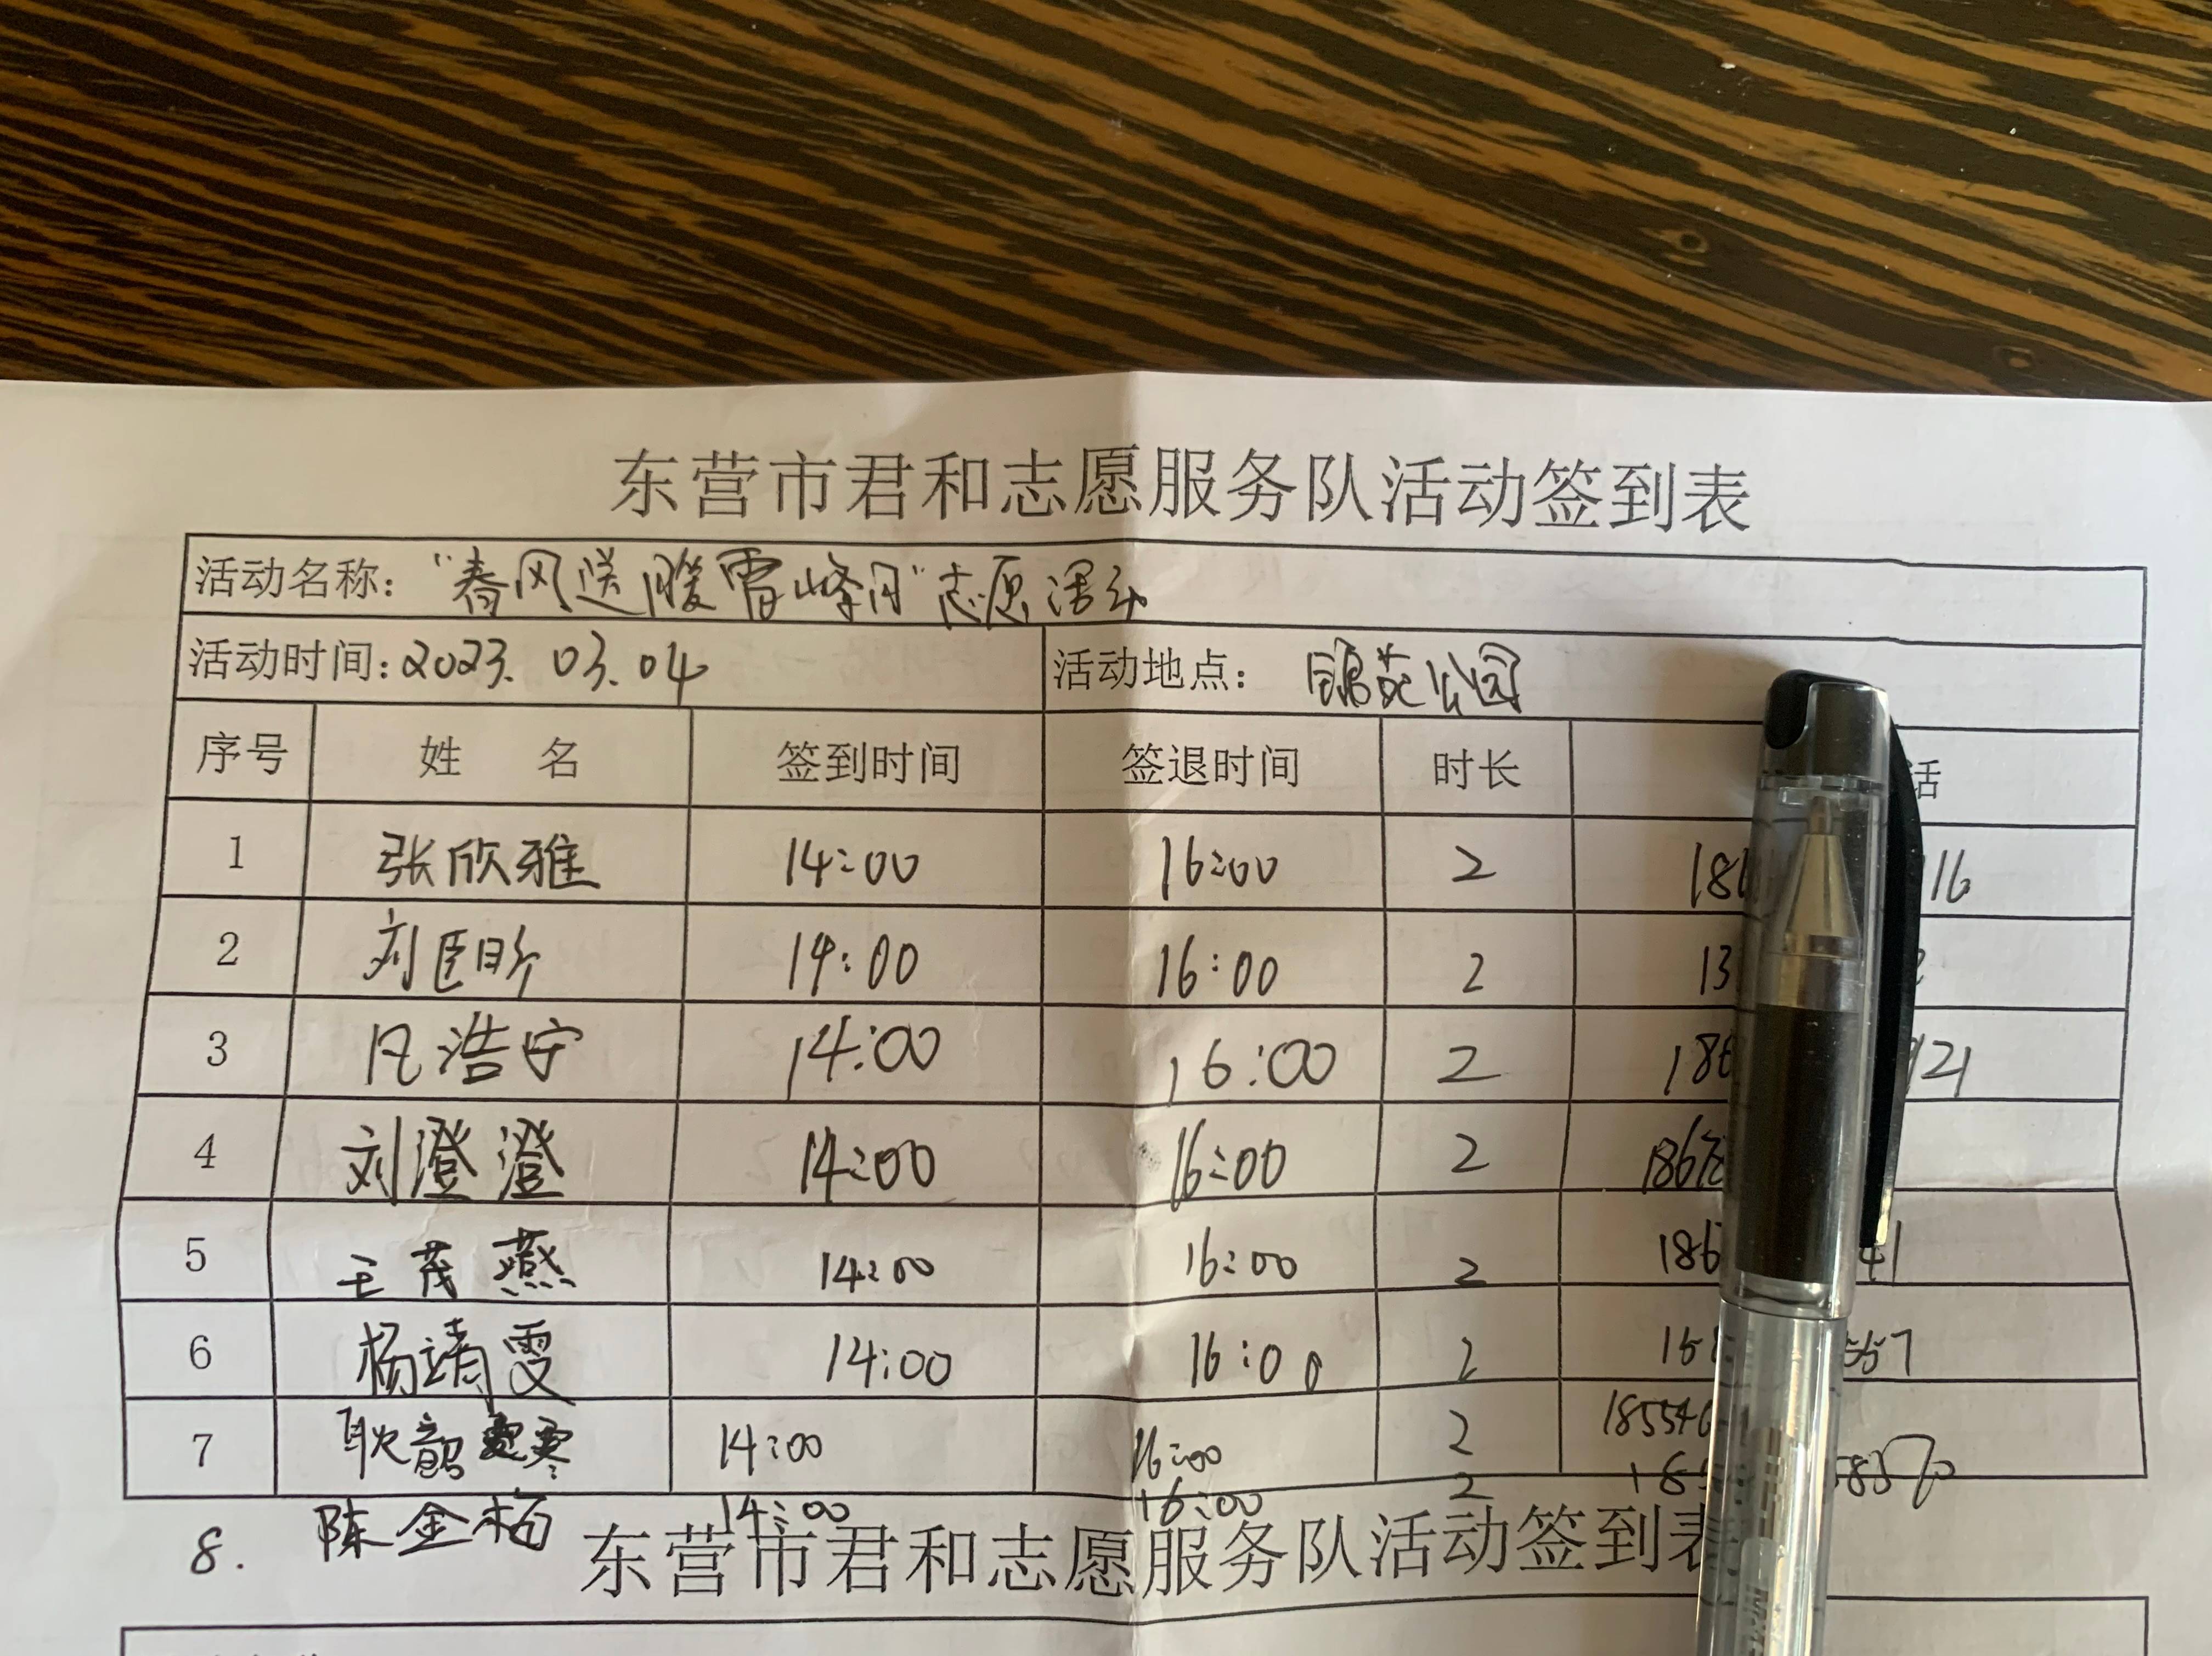 东营市君和志愿服务队活动签到表
活动名称：“春风送暖雷峰月”志愿活动
活动时间：2023.03.04 活动地点： 公园
序号 姓 名 签到时间 签退时间 时长 话
1 张欣雅 14:00 16:00 2 18 116
2 刘臣昕 14:00 16:00 2 13
3 凡浩宁 14:00 16:00 2 186 121
4 刘澄澄 14:00 16:00 2 1867
5 王茂燕 14:00 16:00 2 186 41
6 杨靖雯 14:00 16:00 2 15 557
7 耿韵 14:00 16:00 2 18554
8. 陈金梅 14:00 16:00 2 18 58570
东营市君和志愿服务队活动签到表